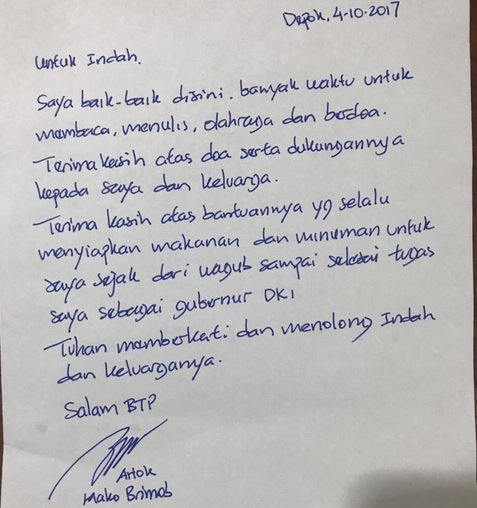 Depok, 4-10-2017
Untuk Indah.
Saya baik-baik disini. banyak waktu untuk
membaca, menulis, olahraga dan berdoa.
Terima kasih atas doa serta dukungannya
kepada saya dan keluarga.
Terima kasih atas bantuannya yg selalu
menyiapkan makanan dan minuman untuk
saya sejak dari wagub sampai selesai tugas
saya sebagai gubernur DKI
Tuhan memberkati dan menolong Indah
dan keluarganya.
Salam BTP
Ahok
Mako Brimob